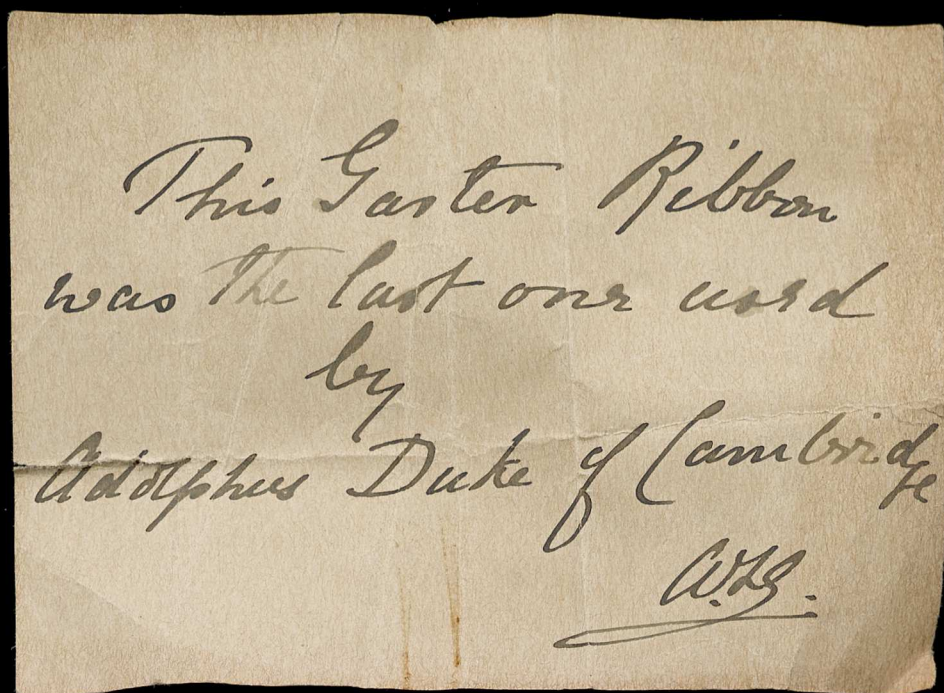 This Garter Ribbon
was the last one used
by
Adolphus Duke of Cambridge